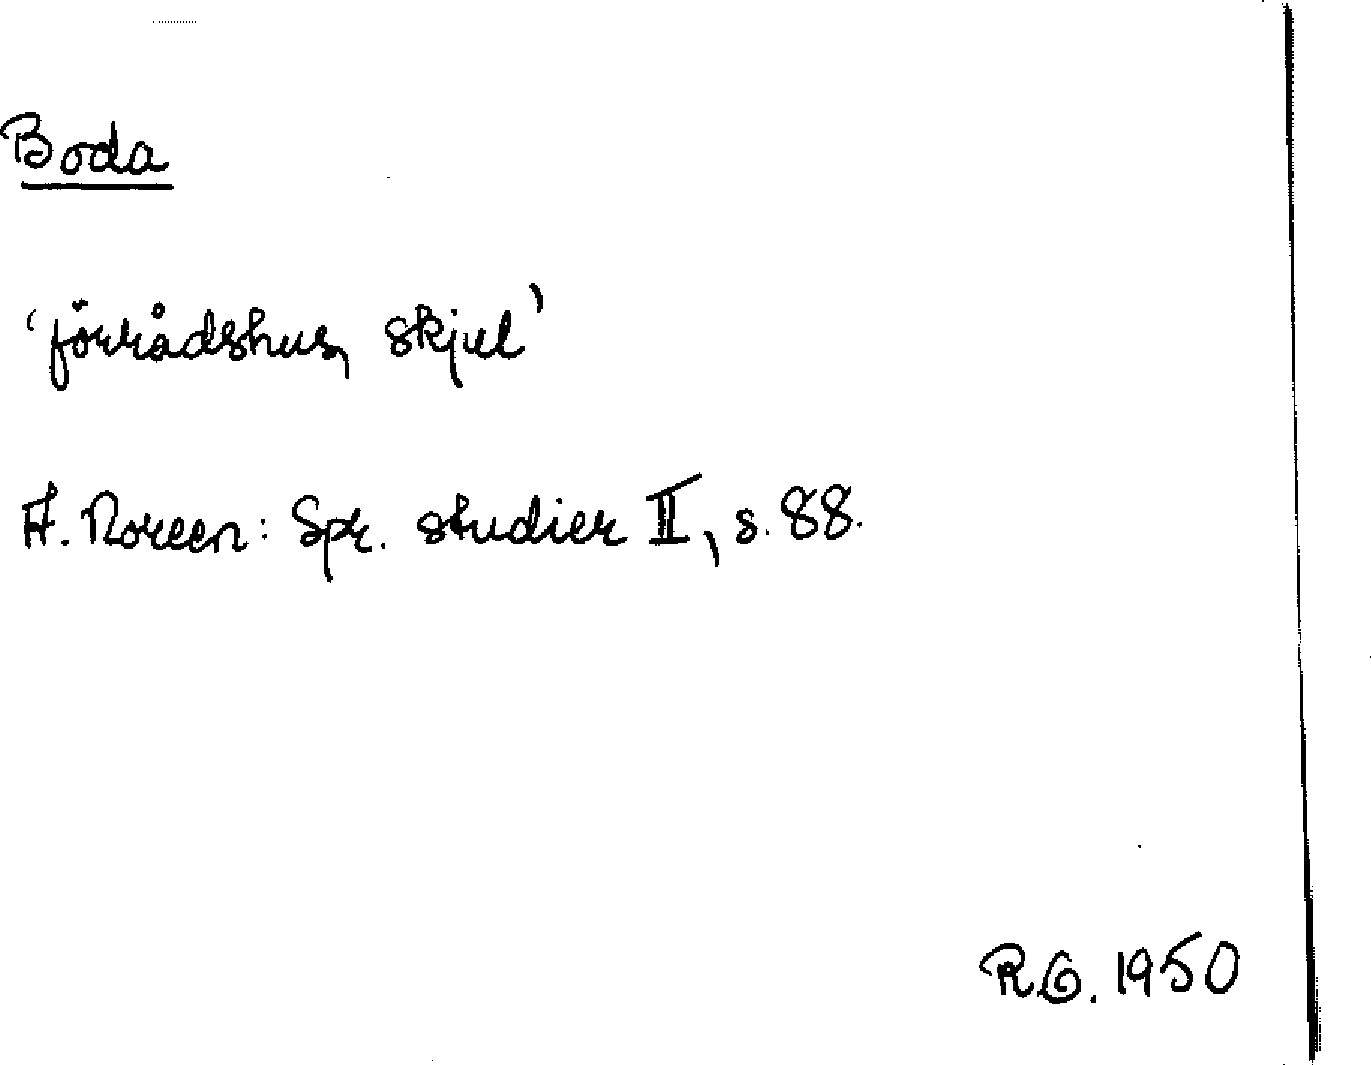 Boda
'förrådshus, skjul'
A. Noreen: Spr. studier II, s. 88.
R.G. 1950